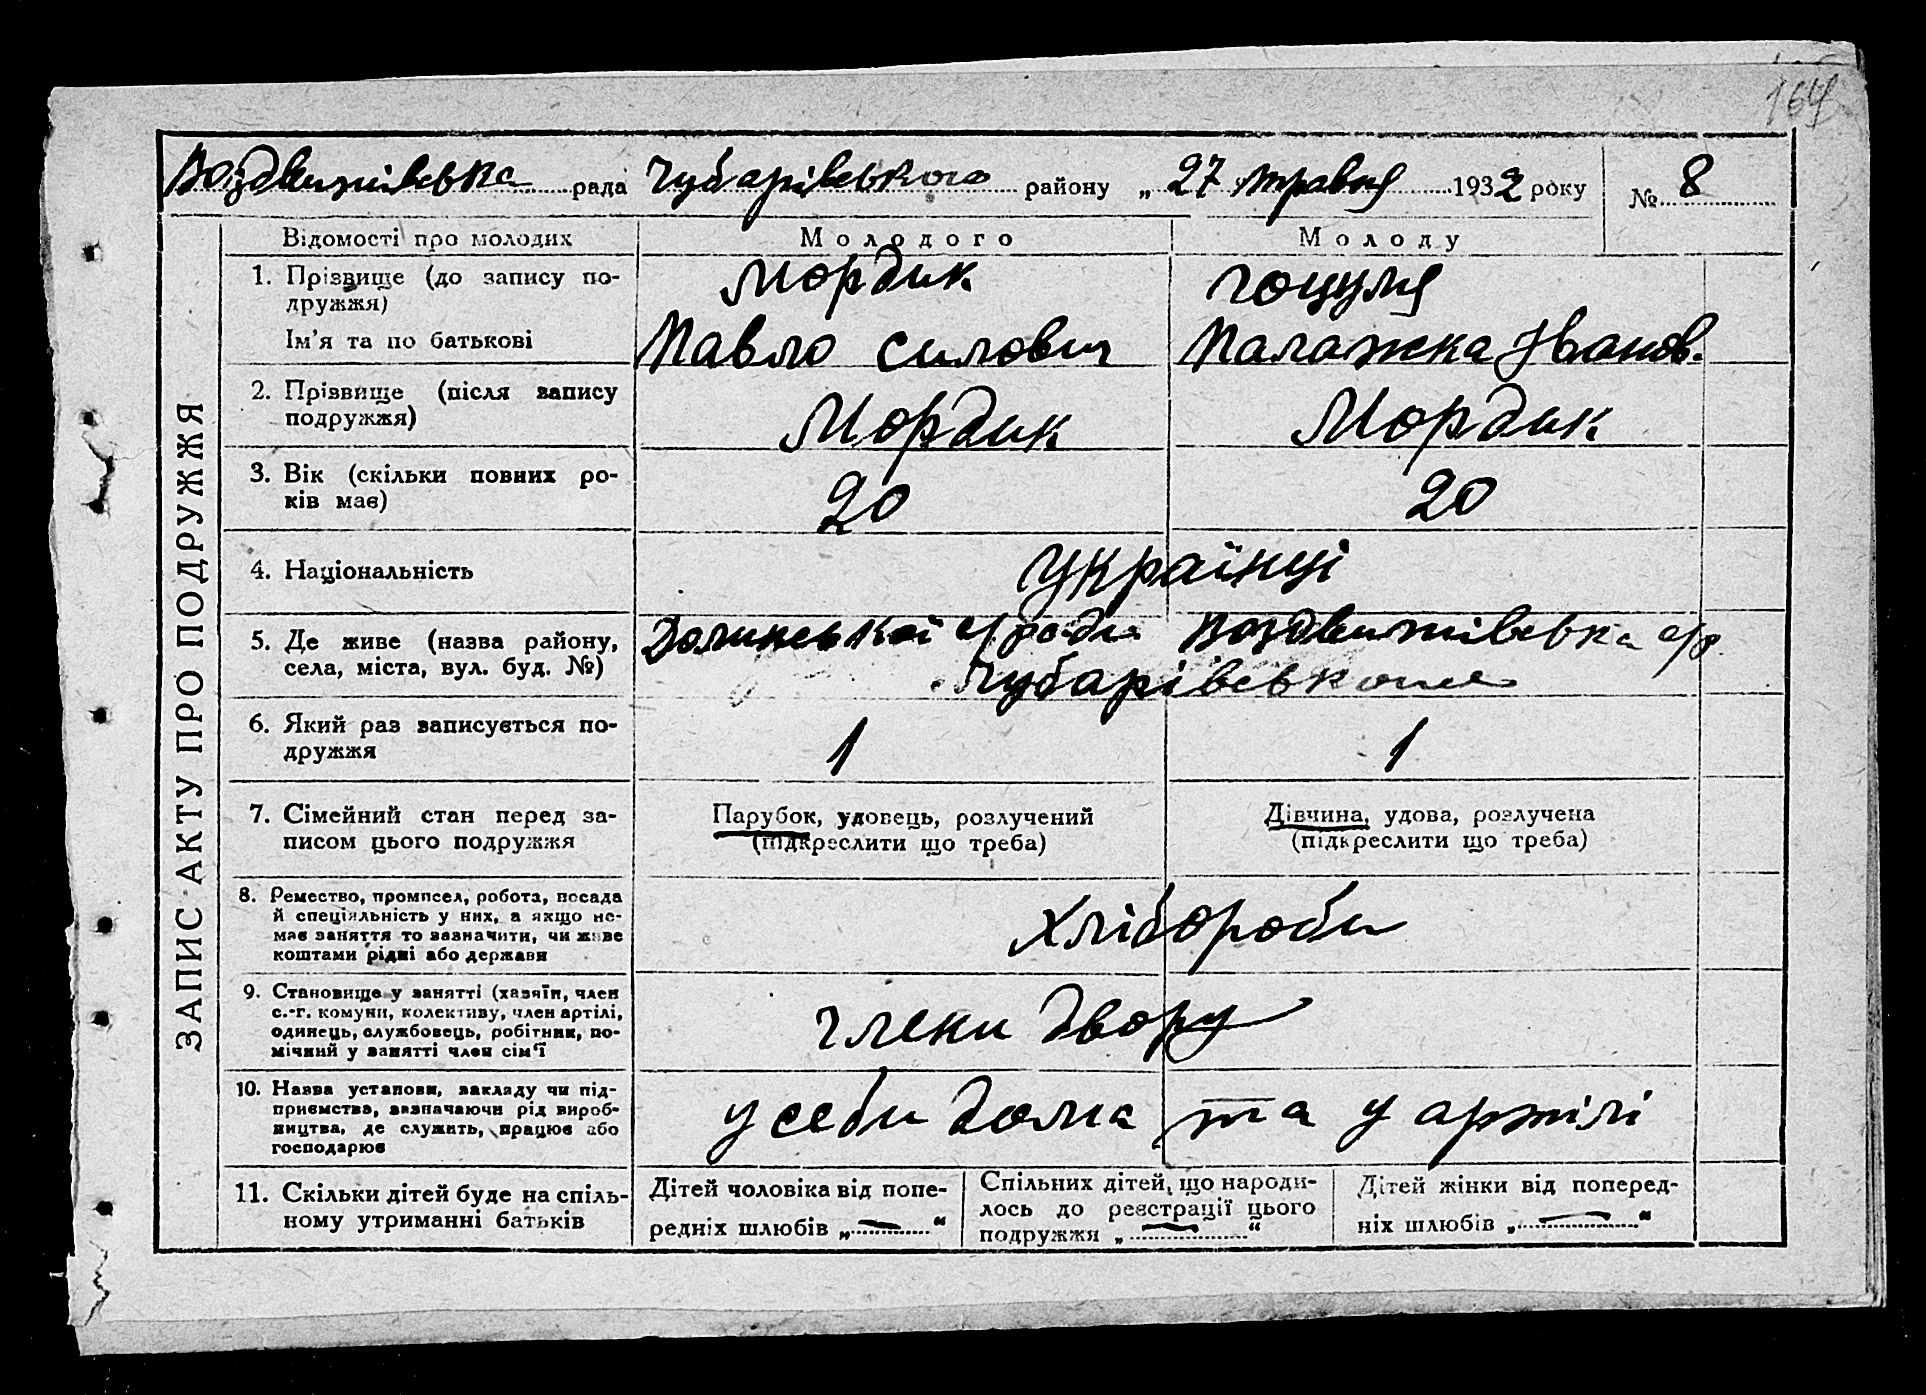 164
Воздвижівська рада Чубарівського району „ 27 " травня 1932 року № 8
ЗАПИС АКТУ ПРО ПОДРУЖЖЯ
Відомості про молодих Молодого Молоду
1. Прізвище (до запису по-
дружжя) Мордик Гоцуля
Ім'я та по батькові Павло Силович Палажка Іванов.
2. Прізвище (після запису
подружжя) Мордик Мордик
3. Вік (скільки повних ро-
ків має) 20 20
4. Національність Українці
5. Де живе (назва району,
села, міста, вул. буд. №) Долинської с/ради Воздвижівська с/р.
Чубарівського
6. Який раз записується по-
дружжя 1 1
7. Сімейний стан перед за-
писом цього подружжя
Парубок, удовець, розлучений
(підкреслити що треба)
Дівчина, удова, розлучена
(підкреслити що треба)
8. Ремество, промисел, робота, посада
й спеціяльність у них, а якщо не-
має заняття то зазначити, чи живе
коштами рідні або держави
Хлібороби
9. Становище у занятті (хазяїн, член
с.-г. комуни, колективу, член артілі,
одинець, службовець, робітник, по-
мічний у занятті член сім'ї
члени двору
10. Назва установи, закладу чи під-
приємства, зазначаючи рід вироб-
ництва, де служать, працює або
господарює
у себи дома та у артілі
11. Скільки дітей буде на спіль-
ному утриманні батьків
Дітей чоловіка від попе-
редніх шлюбів „ — "
Спільних дітей, що народи-
лось до реєстрації цього
подружжя „ — "
Дітей жінки від поперед-
ніх шлюбів „ — "